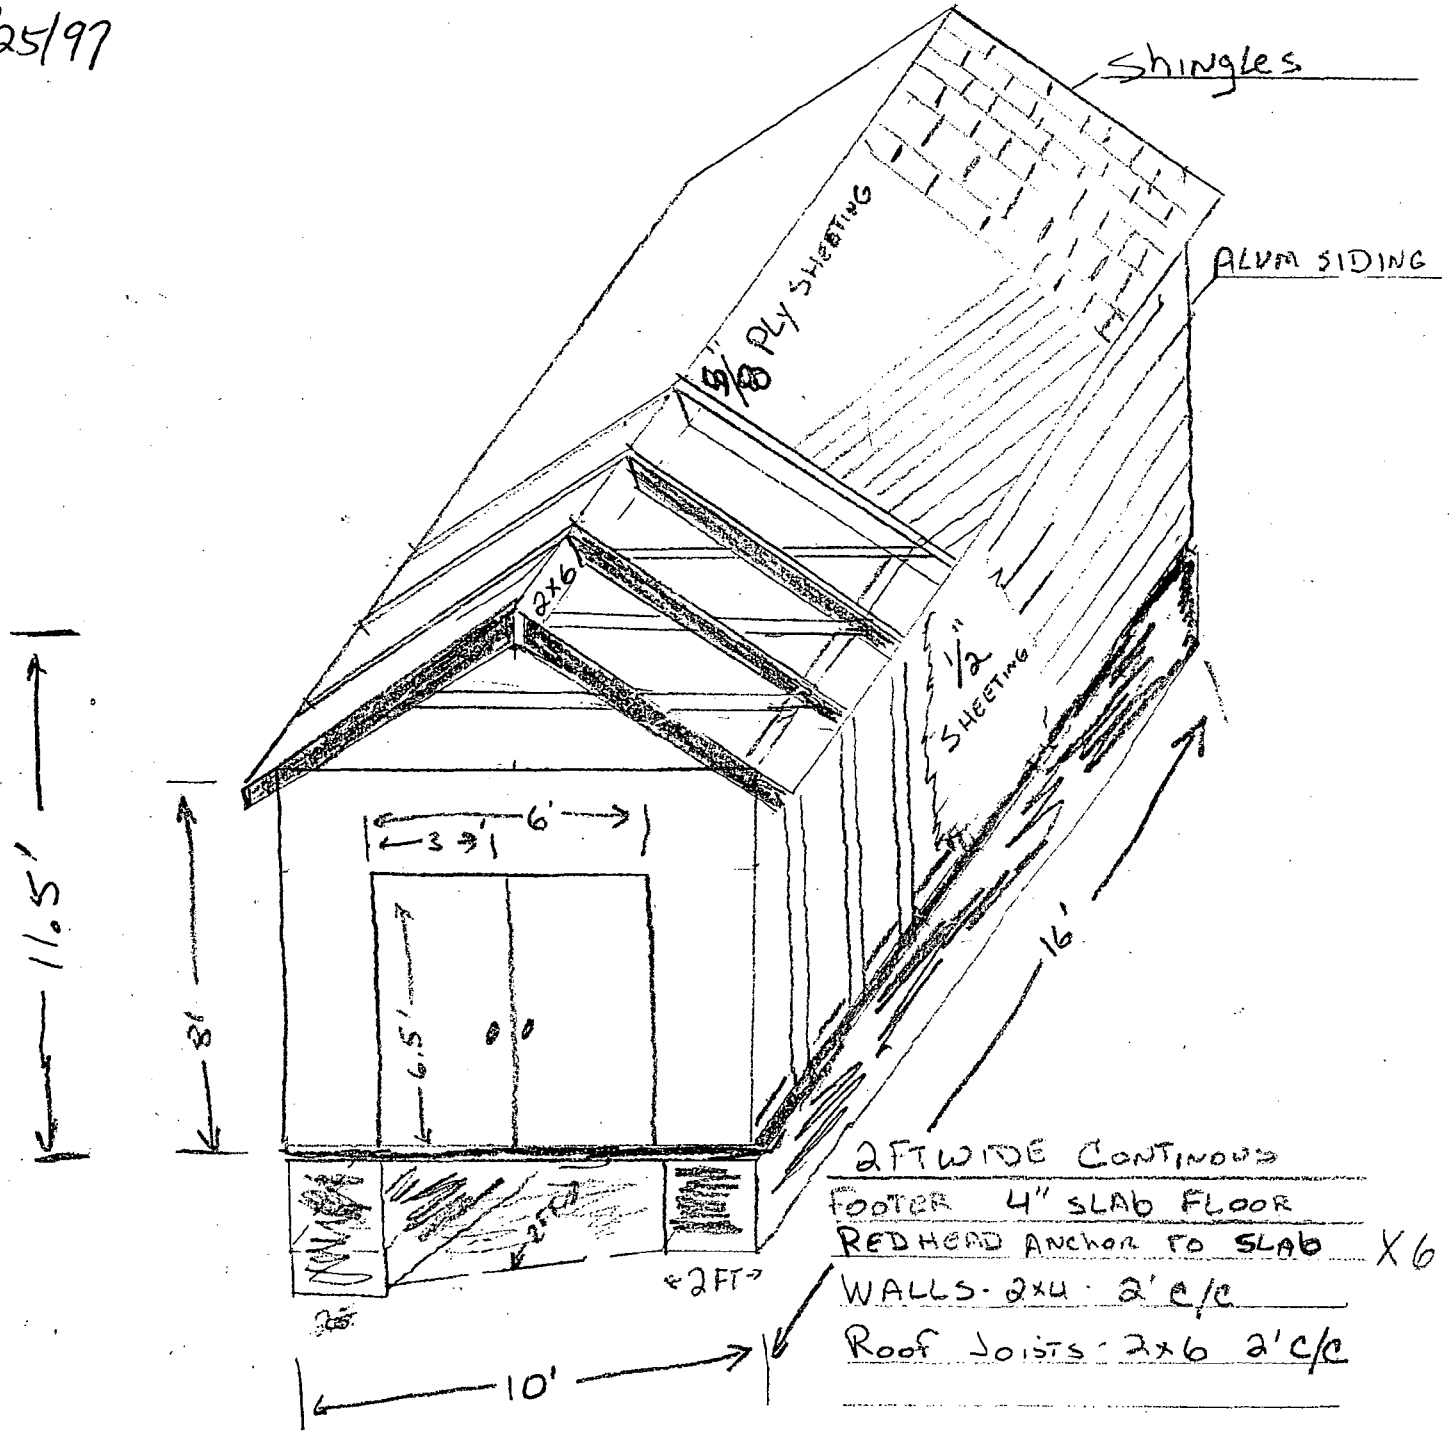 25/97
Shingles
ALUM SIDING
5/8" PLY SHEETING
2x6
1/2"
SHEETING
11.5'
8'
6'
3'
6.5'
16'
2FT WIDE CONTINOUS
FOOTER 4" SLAB FLOOR
REDHEAD ANCHOR TO SLAB X6
WALLS - 2x4 - 2' C/C
ROOF JOISTS - 2x6 2' C/C
2FT
10'